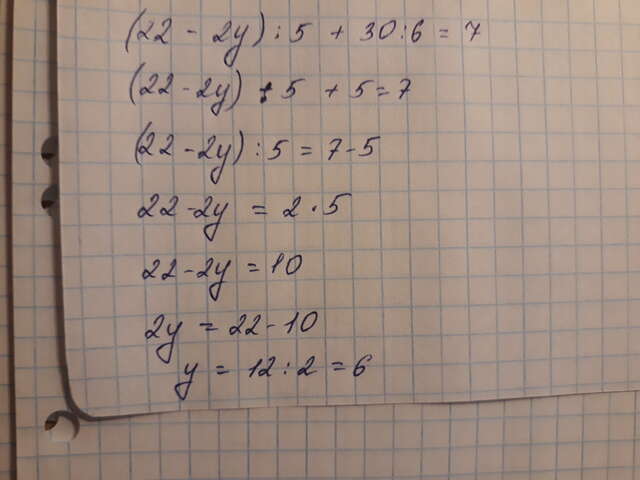 (22 - 2y) : 5 + 30 : 6 = 7
(22 - 2y) : 5 + 5 = 7
(22 - 2y) : 5 = 7 - 5
22 - 2y = 2 · 5
22 - 2y = 10
2y = 22 - 10
y = 12 : 2 = 6